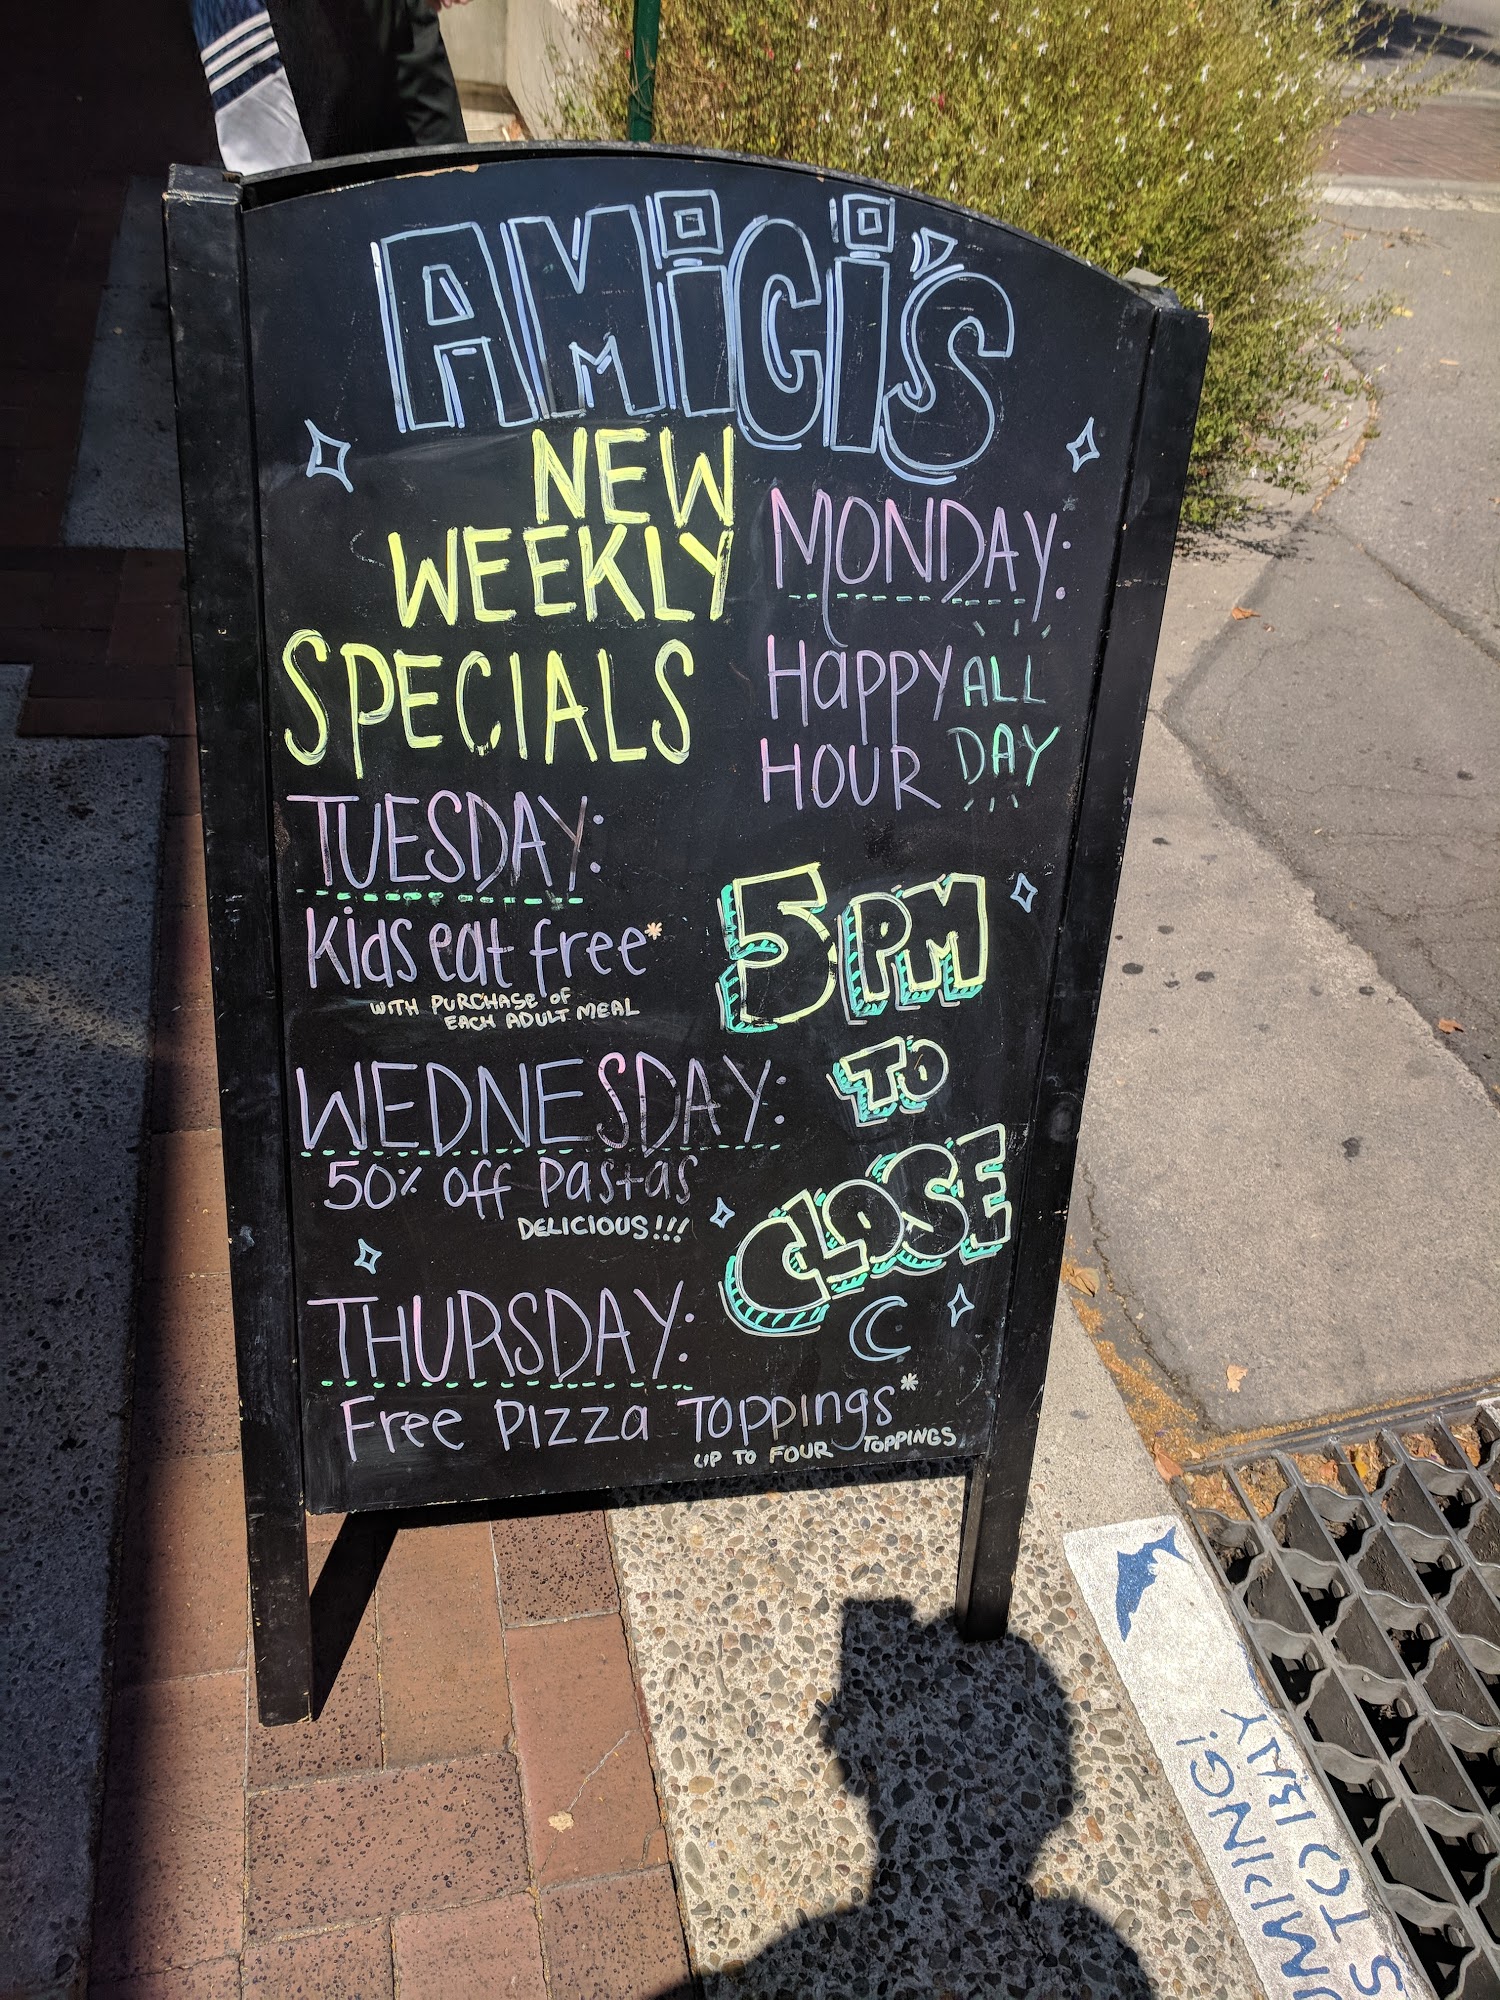 AMiCi'S
NEW
WEEKLY
SPECIALS
MONDAY:
HaPPY
HOUR
ALL
DAY
TUESDAY:
Kids eat free*
WITH PURCHASE OF
EACH ADULT MEAL
WEDNESDAY:
50% off Pastas
DELICIOUS!!!
THURSDAY:
Free Pizza Toppings*
UP TO FOUR TOPPINGS
5PM
TO
CLOSE
S TO BAY